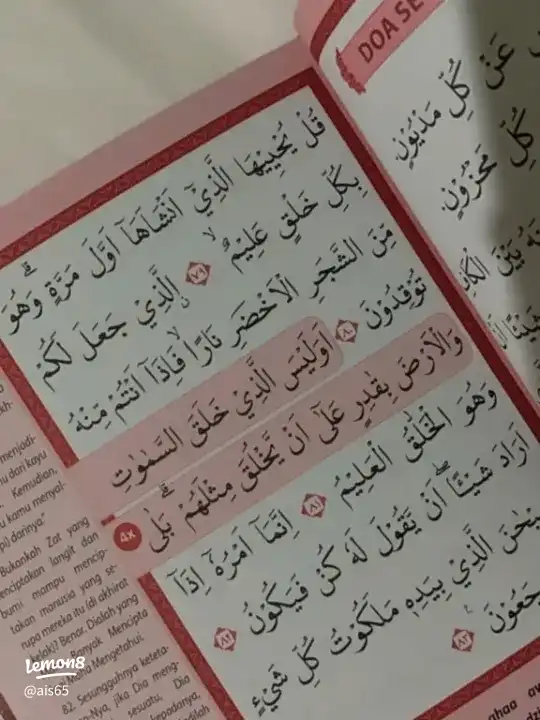 DOA SE
عَنْ كُلِّ مَدْيُوْنٍ
كُلِّ مَحْزُوْنٍ
قُلْ يُحْيِيْهَا الَّذِيْٓ اَنْشَاَهَآ اَوَّلَ مَرَّةٍ ۗوَهُوَ
بِكُلِّ خَلْقٍ عَلِيْمٌ ۙ ٧٩ الَّذِيْ جَعَلَ لَكُمْ
مِّنَ الشَّجَرِ الْاَخْضَرِ نَارًاۙ فَاِذَآ اَنْتُمْ مِّنْهُ
تُوْقِدُوْنَ ٨٠ اَوَلَيْسَ الَّذِيْ خَلَقَ السَّمٰوٰتِ
وَالْاَرْضَ بِقٰدِرٍ عَلٰٓى اَنْ يَّخْلُقَ مِثْلَهُمْ ۗ بَلٰى
4x
وَهُوَ الْخَلّٰقُ الْعَلِيْمُ ٨١ اِنَّمَآ اَمْرُهٗٓ اِذَآ
اَرَادَ شَيْـًٔاۖ اَنْ يَّقُوْلَ لَهٗ كُنْ فَيَكُوْنُ ٨٢
الَّذِيْ بِيَدِهٖ مَلَكُوْتُ كُلِّ شَيْءٍ
٨٣
menjadi-
dari kayu
Kemudian,
kamu menyal-
darinya."
Bukankah Zat yang
menciptakan langit dan
bumi mampu mencip-
takan manusia yang se-
rupa mereka itu (di akhirat
kelak)? Benar. Dialah yang
Banyak Mencipta
Maha Mengetahui.
82. Sesungguhnya keteta-
-Nya, jika Dia meng-
sesuatu, Dia
kepadanya,
lemon8
@ais65